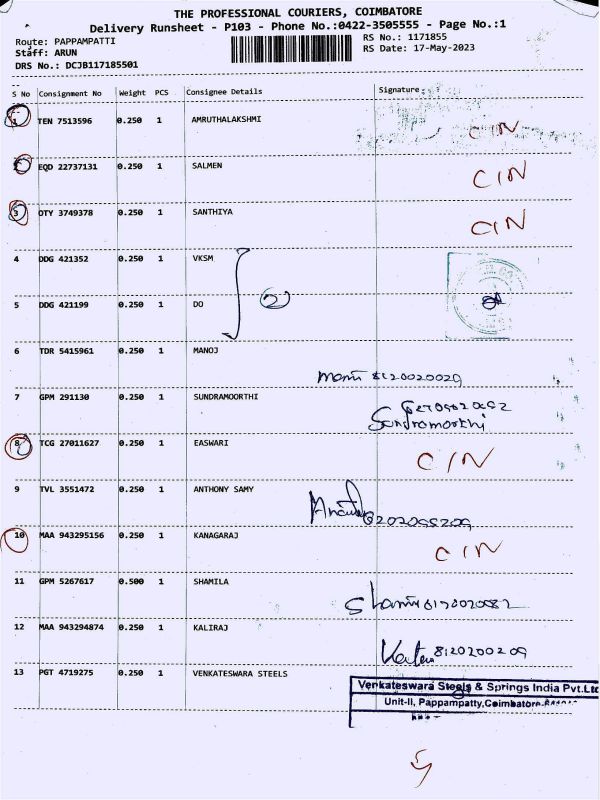 THE PROFESSIONAL COURIERS, COIMBATORE
Delivery Runsheet - P103 - Phone No.:0422-3505555 - Page No.:1
Route: PAPPAMPATTI RS No.: 1171855
Staff: ARUN RS Date: 17-May-2023
DRS No.: DCJB117185501
S No Consignment No Weight PCS Consignee Details Signature
1 TEN 7513596 0.250 1 AMRUTHALAKSHMI CIN
EQD 22737131 0.250 1 SALMEN CIN
3 OTY 3749378 0.250 1 SANTHIYA CIN
4 DDG 421352 0.250 1 VKSM
2
5 DDG 421199 0.250 1 DO
6 TDR 5415961 0.250 1 MANOJ
8120020029
7 GPM 291130 0.250 1 SUNDRAMOORTHI
Sundramoorthi
8 TCG 27011627 0.250 1 EASWARI CIN
9 TVL 3551472 0.250 1 ANTHONY SAMY
10 MAA 943295156 0.250 1 KANAGARAJ CIN
11 GPM 5267617 0.500 1 SHAMILA
12 MAA 943294874 0.250 1 KALIRAJ
8120200209
13 PGT 4719275 0.250 1 VENKATESWARA STEELS
Venkateswara Steels & Springs India Pvt.Ltd
Unit-II, Pappampatty,Coimbatore